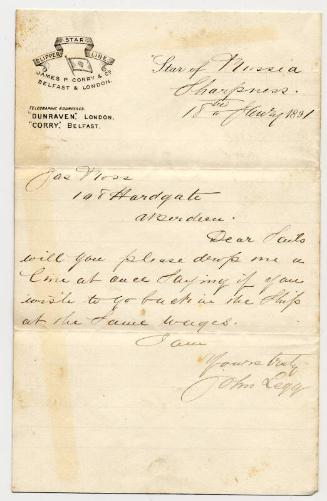 STAR
CLIPPER LINE
JAMES P. CORRY & Co
BELFAST & LONDON.
TELEGRAPHIC ADDRESSES.
"DUNRAVEN", LONDON.
"CORRY", BELFAST.
"Star of Russia
Sharpness.
18th Jany 1891
Jas Ross
198 Hardgate
Aberdeen.
Dear
will you please drop me a
line at once Saying if you
wish to go back in the Ship
at the Same wages.
I am
Yours truly
John Legg